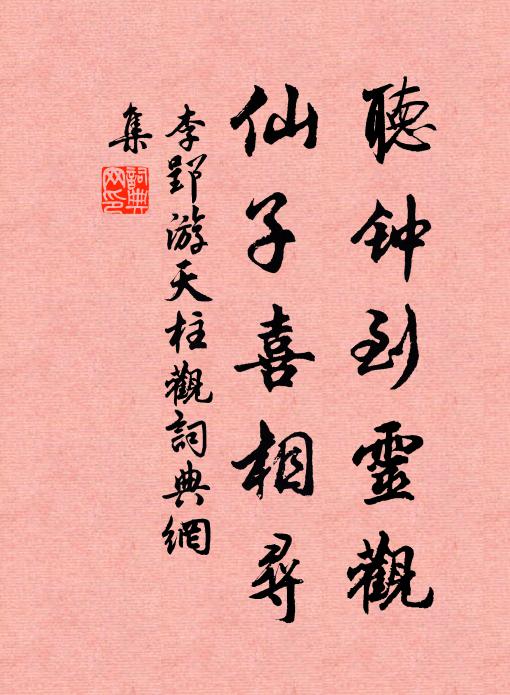 聽钟到靈觀
仙子喜相尋
李郢游天柱觀詞典網
集
詞典
网印